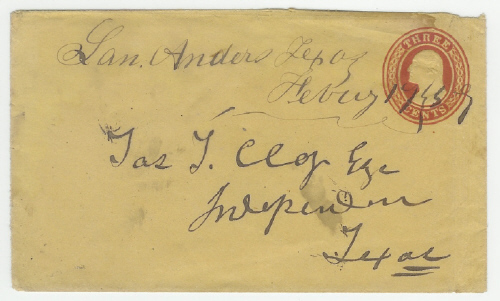 San. Anders Texas
Feby 17
THREE
CENTS
Jas T. Esqe
Independen
Texas